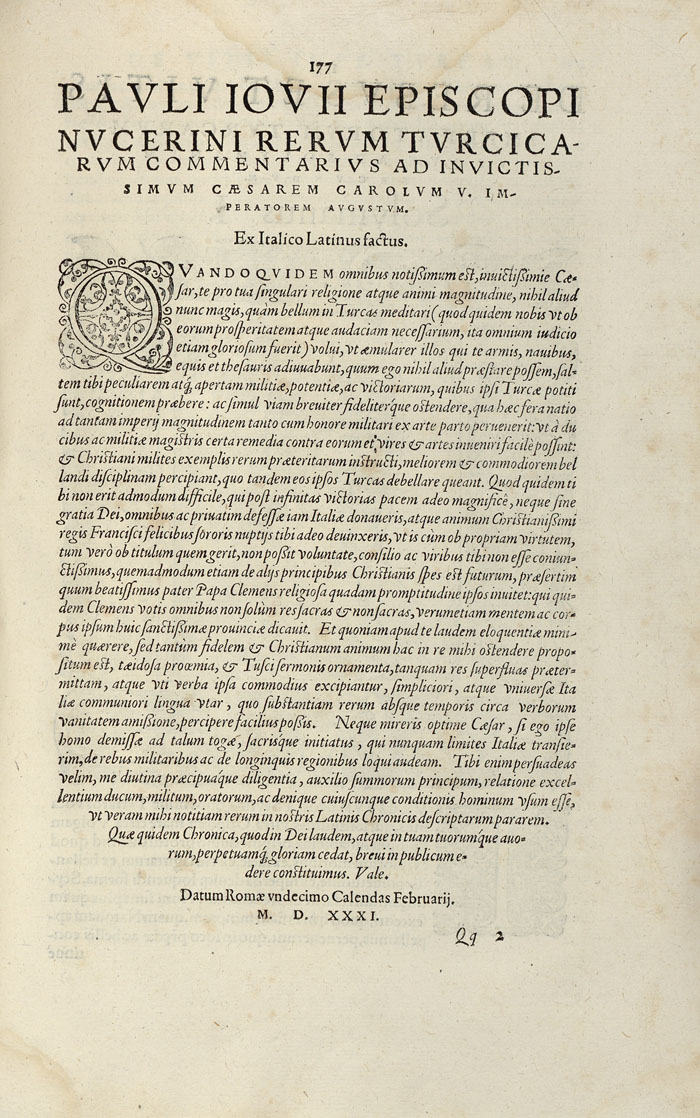 177
PAVLI IOVII EPISCOPI
NVCERINI RERVM TVRCICA-
RVM COMMENTARIVS AD INVICTIS-
SIMVM CÆSAREM CAROLVM V. IM-
PERATOREM AVGVSTVM.
Ex Italico Latinus factus.
QVANDOQVIDEM omnibus notißimum est, inuictißimie Cæ-
sar, te pro tua singulari religione atque animi magnitudine, nihil aliud
nunc magis, quàm bellum in Turcas meditari (quod quidem nobis vt ob
eorum prosperitatem atque audaciam necessarium, ita omnium iudicio
etiam gloriosum fuerit) volui, vt æmularer illos qui te armis, nauibus,
equis et thesauris adiuuabunt, quum ego nihil aliud præstare possem, sal-
tem tibi peculiarem atq́; apertam militiæ, potentiæ, ac victoriarum, quibus ipsi Turcæ potiti
sunt, cognitionem præbere: ac simul viam breuiter fideliterq́ue ostendere, qua hæc fera natio
ad tantam imperij magnitudinem tanto cum honore militari ex arte parto peruenerit: vt à du
cibus ac militiæ magistris certa remedia contra eorum et vires & artes inueniri facilè poßint:
& Christiani milites exemplis rerum præteritarum instructi, meliorem & commodiorem bel
landi disciplinam percipiant, quo tandem eos ipsos Turcas debellare queant. Quod quidem ti
bi non erit admodum difficile, qui post infinitas victorias pacem adeo magnificè, neque sine
gratia Dei, omnibus ac priuatim defessæ iam Italiæ donaueris, atque animum Christianißimi
regis Francisci felicibus sororis nuptijs tibi adeo deuinxeris, vt is cùm ob propriam virtutem,
tum verò ob titulum quem gerit, non poßit voluntate, consilio ac viribus tibi non esse coniun-
ctißimus, quemadmodum etiam de alijs principibus Christianis spes est futurum, præsertim
quum beatißimus pater Papa Clemens religiosa quadam promptitudine ipsos inuitet: qui qui-
dem Clemens votis omnibus non solùm res sacras & non sacras, verumetiam mentem ac cor-
pus ipsum huic sanctißimæ prouinciæ dicauit. Et quoniam apud te laudem eloquentiæ mini-
mè quærere, sed tantùm fidelem & Christianum animum hac in re mihi ostendere propo-
situm est, tædiosa proœmia, & Tusci sermonis ornamenta, tanquam res superfluas præter-
mittam, atque vti verba ipsa commodius excipiantur, simpliciori, atque vniuersæ Ita
liæ communiori lingua vtar, quo substantiam rerum absque temporis circa verborum
vanitatem amißione, percipere facilius poßis. Neque mireris optime Cæsar, si ego ipse
homo demissæ ad talum togæ, sacrisque initiatus, qui nunquam limites Italiæ transie-
rim, de rebus militaribus ac de longinquis regionibus loqui audeam. Tibi enim persuadeas
velim, me diutina præcipuaq́ue diligentia, auxilio summorum principum, relatione excel-
lentium ducum, militum, oratorum, ac denique cuiuscunque conditionis hominum vsum esse,
vt veram mihi notitiam rerum in nostris Latinis Chronicis descriptarum pararem.
Quæ quidem Chronica, quod in Dei laudem, atque in tuam tuorumq́ue auo-
rum, perpetuamq́; gloriam cedat, breui in publicum e-
dere constituimus. Vale.
Datum Romæ vndecimo Calendas Februarij.
M. D. XXXI.
Qq 2